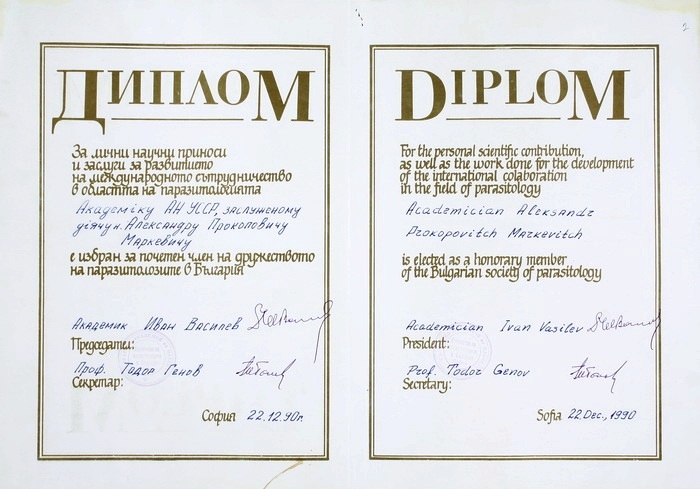 ДИПЛОМ
За лични научни приноси
и заслуги за развитието
на международното сътрудничество
в областта на паразитологията
Академіку АН УССР, заслуженому
діячу н. Александру Прокоповичу
Маркевичу
е избран за почетен член на дружеството
на паразитолозите в България
Академик Иван Василев
Председател:
Проф. Тодор Генов
Секретар:
София 22.12.90г.
DIPLOM
For the personal scientific contribution,
as well as the work done for the development
of the international colaboration
in the field of parasitology
Academician Aleksandr
Prokopovitch Markevitch
is elected as a honorary member
of the Bulgarian society of parasitology
Academician Ivan Vasilev
President:
Prof. Todor Genov
Secretary:
Sofia 22 Dec., 1990
2